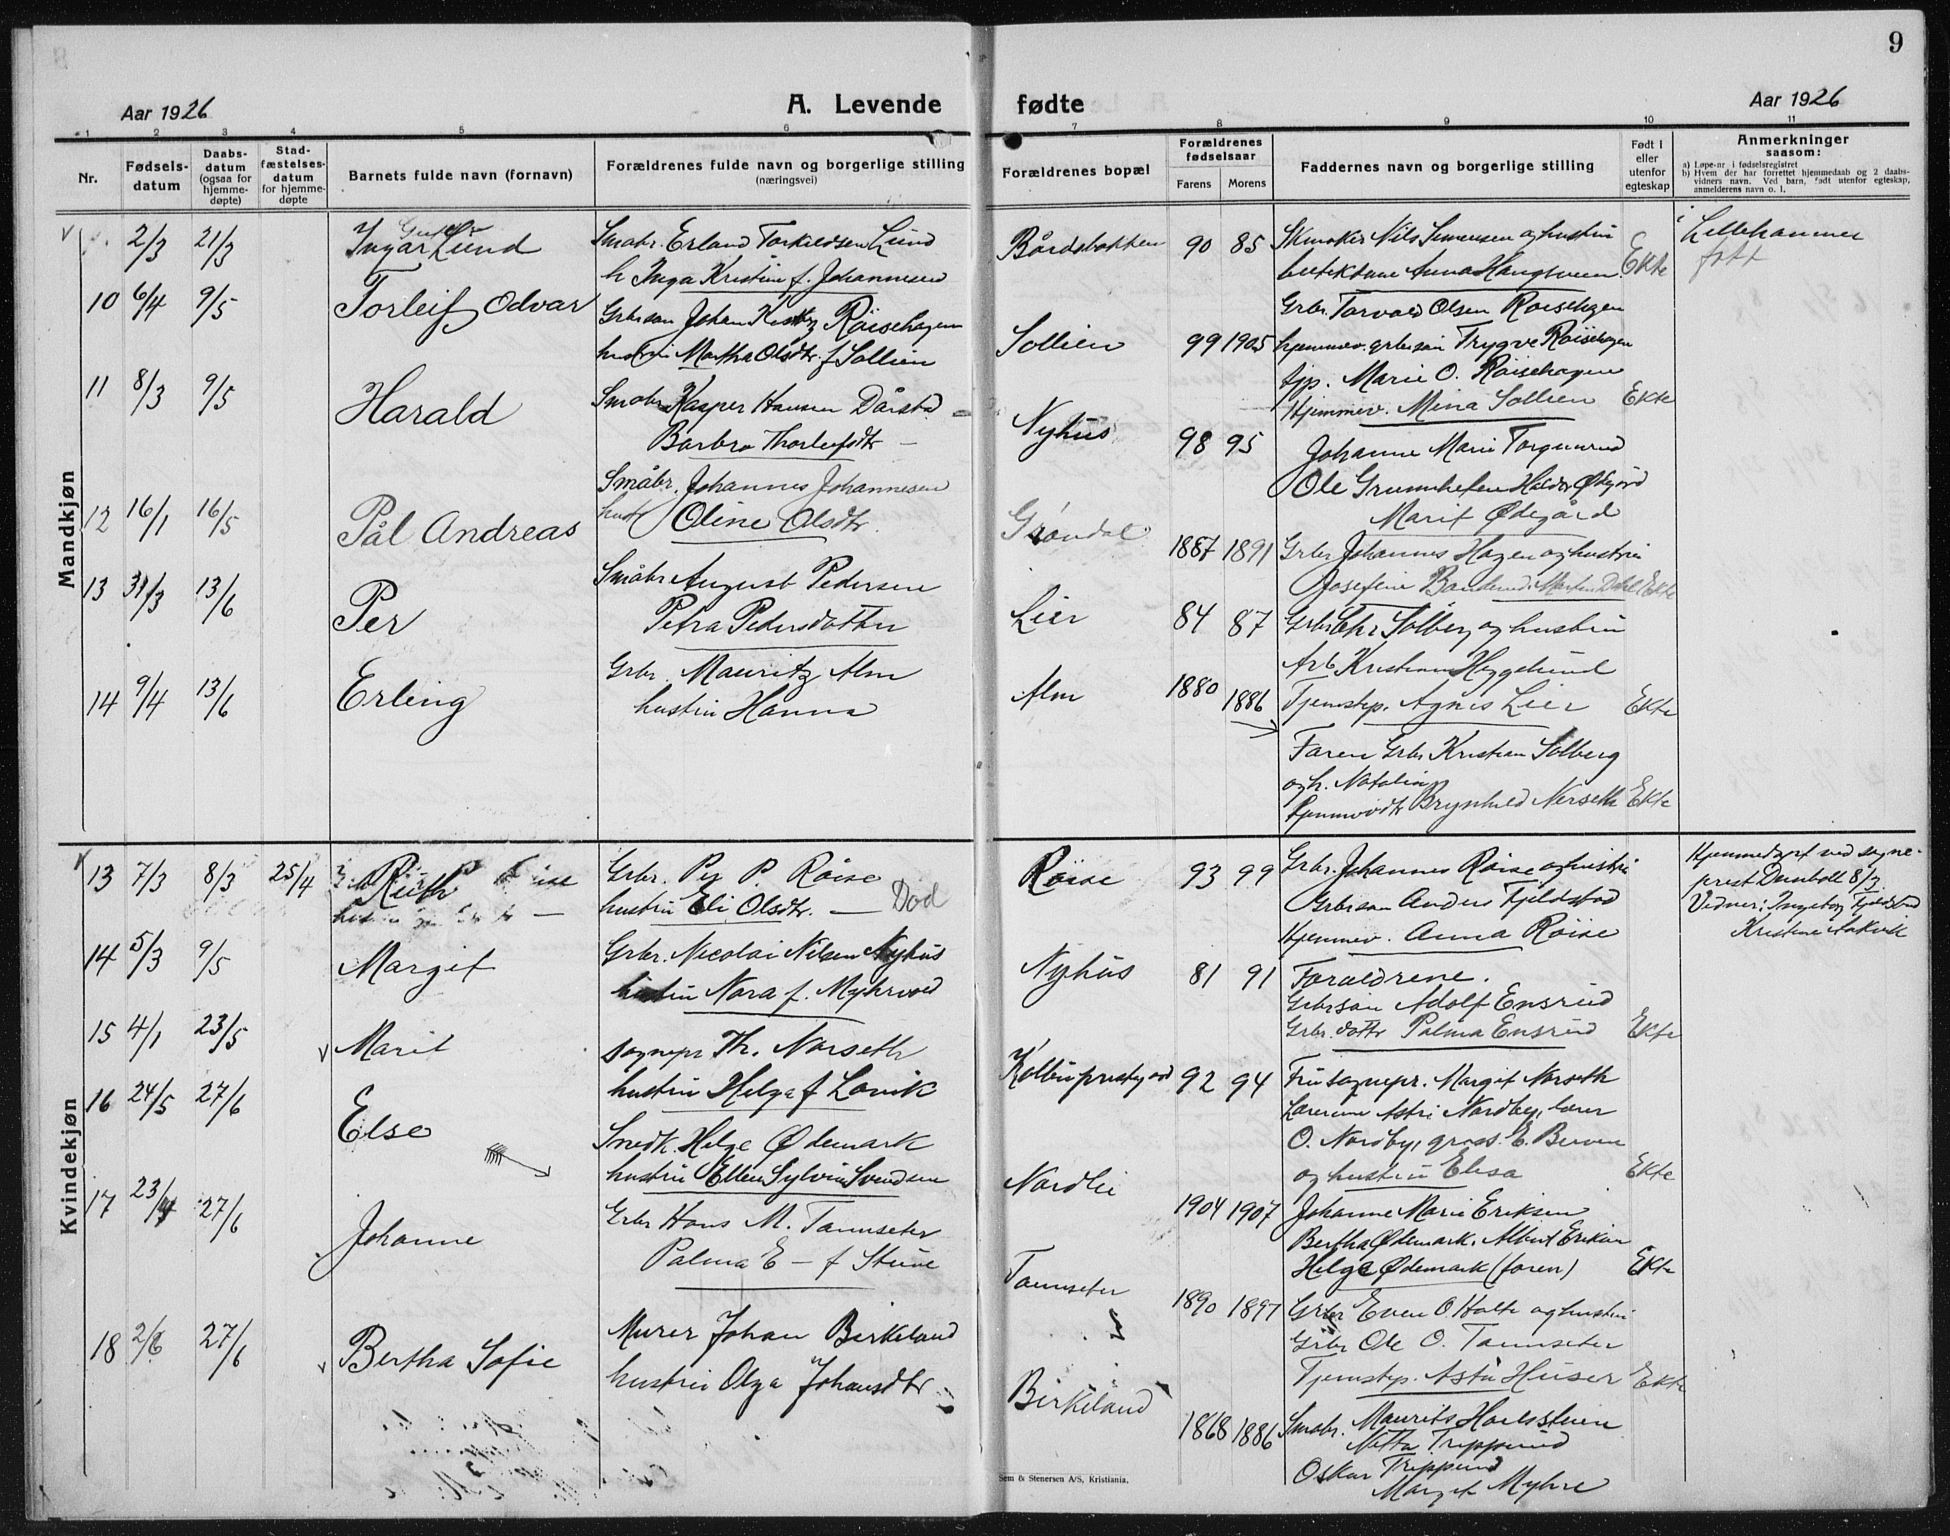 9
Aar 1926
A. Levende fødte
Aar 1926
1 2 3 4 5 6 7 8 9 10 11
Nr.
Fødsels-
datum
Daabs-
datum
(ogsaa for
hjemme-
døpte)
Stad-
fæstelses-
datum
for hjemme-
døpte
Barnets fulde navn (fornavn)
Forældrenes fulde navn og borgerlige stilling
(næringsvei)
Forældrenes bopæl
Forældrenes
fødselsaar
Farens Morens
Faddernes navn og borgerlige stilling
Født i
eller
utenfor
egteskap
Anmerkninger
saasom:
a) Løpe-nr i fødselsregistret
b) Hvem der har forrettet hjemmedaab og 2 daabs-
vidners navn. Ved barn, født utenfor egteskap,
anmelderens navn o. l.
Mandkjøn
2/3 21/3 Ingar Lund
Småbr. Erland Torkildsen Lund
h Inga Kristine f. Johannesen
90 85
Skmaker Nils Simensen og hustru
Anna Haugsveen Ekte
i Lillehammer
født
10 6/4 9/5 Torleif Odvar
Grbr.søn Johan Røisehagen
hustru Martha Olsdtr. f Sollien
Sollien 99 1905
Grbr. Torvald Olsen Røisehagen
hjemmev. grbr.søn Trygve Røisehagen
tjp. Marie O. Røisehagen
Hjemmev. Mina Sollien Ekte
11 8/3 9/5 Harald
Småbr. Kasper Hansen Dårstad
Barbro Thorleifsdtr —
Nyhus 98 95
Johanne Marie Torgunrud
Ole Grumhefen Halder Ødegård
Marit Ødegård
12 16/1 16/5 Pål Andreas
Småbr. Johannes Johannesen
hustr Oline Olsdtr.
Grøndal 1887 1891
Grbr Johannes Hagen og hustru
Josefine Marten Dahl Ekte
13 31/3 13/6 Per
Småbr August Pedersen
Petra Pedersdotter
Lier 84 87
Grbr Chr Solberg og hustru
Arb Kristian Heggelund
Tjenestep. Agnes Lier Ekte
14 9/4 13/6 Erling
Grbr. Mauritz Alm
hustru Hanna
Alm 1880 1886
Faren Grbr Kristian Solberg
og h. Nataling
Brynhild Nerseth Ekte
Kvindekjøn
13 7/3 8/3 25/4 Ruth
Grbr. Per P. Røise
hustru Eli Olsdtr. — Død
Røise 93 99
Grbr. Johannes Røise og hustru
Grbr.søn Anders Fjeldstad
Hjemmev. Anna Røise
Hjemmedøpt ved sogne-
prest 8/3
Vidner: Ingeborg Fjeldstad
Kristine Aakvik
14 5/3 9/5 Margit
Grbr. Nicolai Nilsen Nyhus
hustru Nora f. Myhrvold
Nyhus 81 91
Foraldrene.
Grbr.søn Adolf Ensrud
Grbr. dottr Palma Ensrud Ekte
15 4/1 23/5 Marit
sognepr Th. Norseth
hustru Helga f Lovik
Kolbu prestegård 92 94
Fru sognepr. Margit Norseth
Lærerinne Astri Nordby, lærer
O. Nordby, gross. E. Berven
og hustru Elisa Ekte
16 24/5 27/6 Else
Smedk. Helge Ødemark
hustru Ellen Sylvia Svendsen
Nordlie 1904 1907
Johanne Marie Eriksen
Bertha Ødemark. Albert Eriksen
Helge Ødemark (faren) Ekte
17 23/4 27/6 Johanne
Grbr Hans M. Tømmseter
Palma E — f Stuve
1890 1897
Grbr Even O Holte og hustru
Grbr Ole O. Tømmseter
Tjenestep. Asta Huser Ekte
18 2/6 27/6 Bertha Sofie
Murer Johan Birkeland
hustru Olga Johansdtr.
Birkeland 1868 1886
Småbr. Maurits
Trippsrud
Oskar Trippsrud
Marget Myhre
Sem & Stenersen A/S, Kristiania.